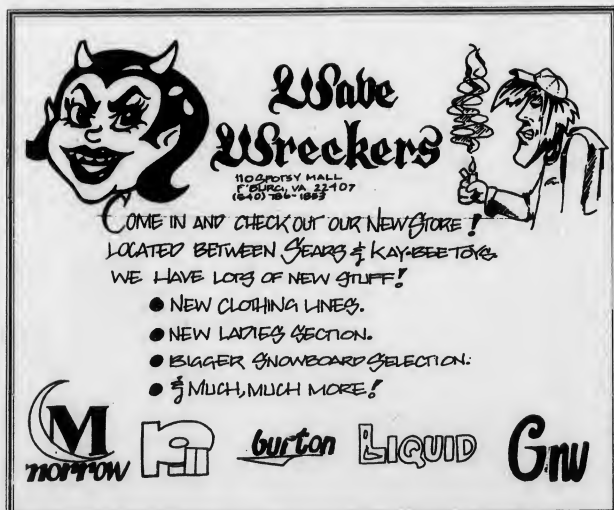 Wave
Wreckers
110 SPOTSY MALL
F'BURG, VA 22407
(540) 786-1853
COME IN AND CHECK OUT OUR NEW STORE!
LOCATED BETWEEN SEARS & KAY-BEE TOYS.
WE HAVE LOTS OF NEW STUFF!
● NEW CLOTHING LINES.
● NEW LADIES SECTION.
● BIGGER SNOWBOARD SELECTION.
● & MUCH, MUCH MORE!
M
morrow
burton
LIQUID
Gnu